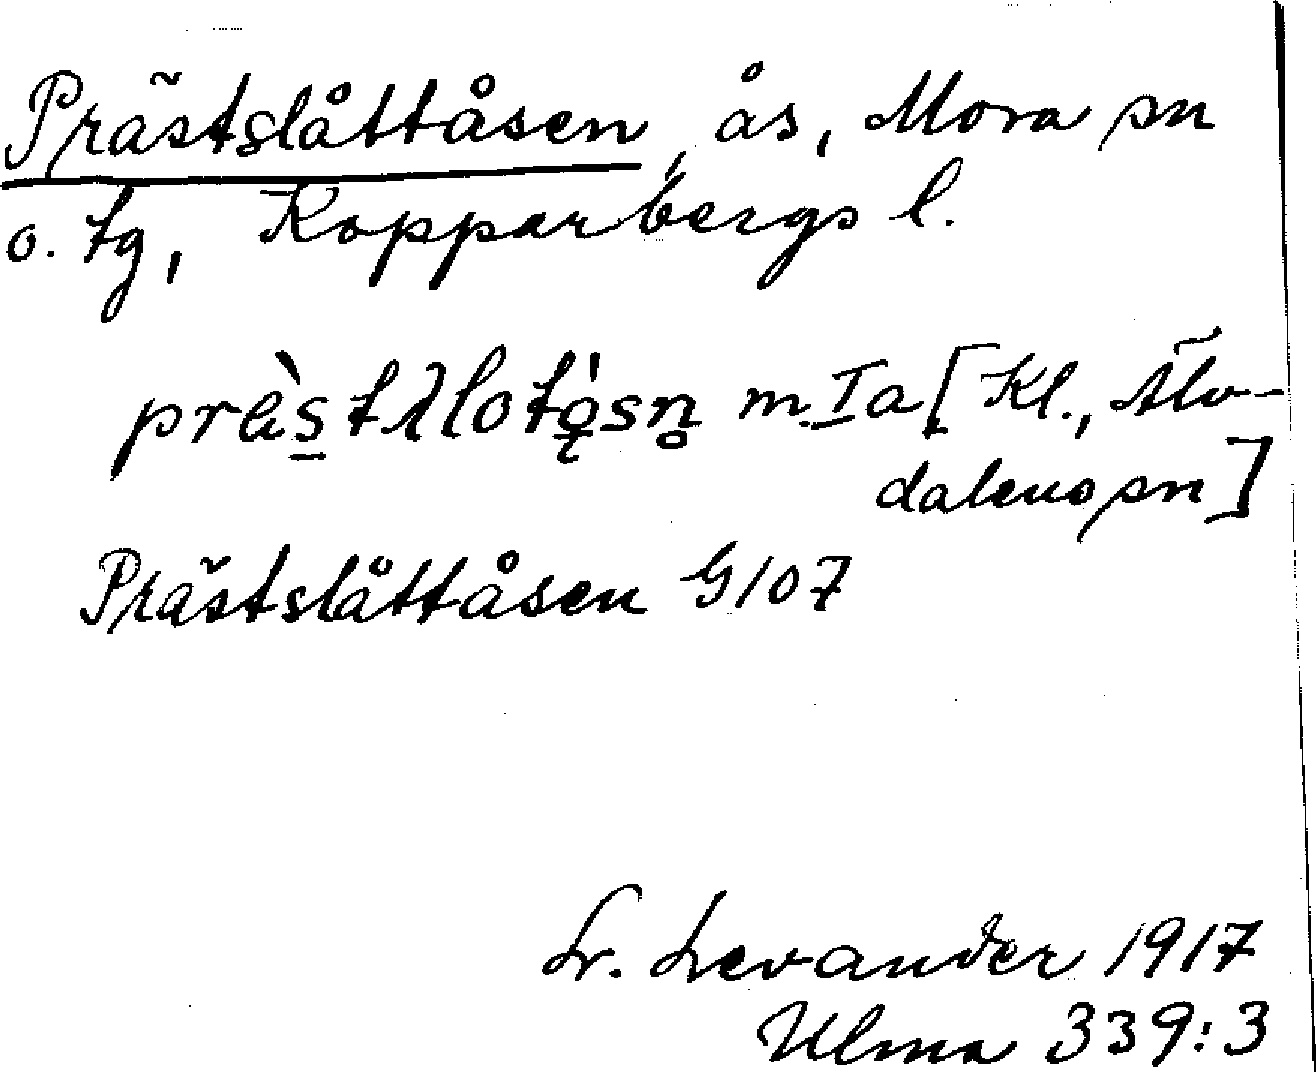 Prästslåttåsen, ås, Mora sn
o. tg, Kopparbergs l.
m. Ia [Kl., Älv-
dalens sn]
Prästslåttåsen G107
L. Levander 1917
Ulma 339:3